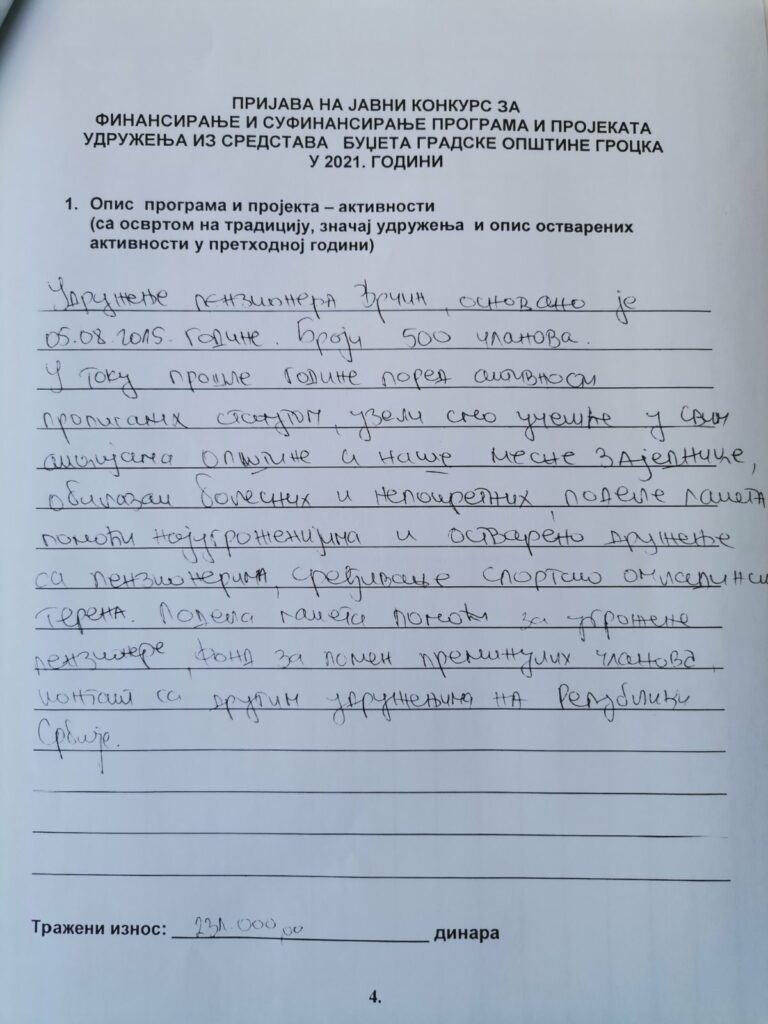 ПРИЈАВА НА ЈАВНИ КОНКУРС ЗА
ФИНАНСИРАЊЕ И СУФИНАНСИРАЊЕ ПРОГРАМА И ПРОЈЕКАТА
УДРУЖЕЊА ИЗ СРЕДСТАВА БУЏЕТА ГРАДСКЕ ОПШТИНЕ ГРОЦКА
У 2021. ГОДИНИ
1. Опис програма и пројекта – активности
(са освртом на традицију, значај удружења и опис остварених
активности у претходној години)
Удружење пензионера Врчин, основано је
05.08.2015. године. Броји 500 чланова.
У току прошле године поред активности
прописаних статутом, узели смо учешће у свим
акцијама општине и наше месне заједнице,
обилазак болесних и непокретних, поделе пакета
помоћи најугроженијима и остварено дружење
са пензионерима, сређивање спортско омладинског
терена. Подела пакета помоћи за угрожене
пензинере, фонд за помен преминулих чланова,
контакт са другим удружењима на Републици
Србије.
Тражени износ: 000,00 динара
4.